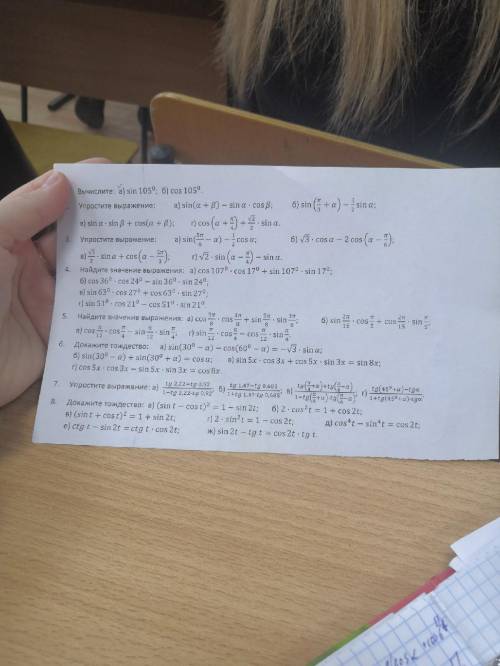 Вычислите: а) sin 105⁰; б) cos 105⁰.
Упростите выражение: а) sin(α + β) − sin α · cos β; б) sin(π/3 + α) − 1/2 sin α;
в) sin α · sin β + cos(α + β); г) cos(α + π/4) + √2/2 · sin α.
3. Упростите выражение: а) sin(5π/6 − α) − 1/2 cos α; б) √3 · cos α − 2 cos(α − π/6);
в) √3/2 · sin α + cos(α − 2π/3); г) √2 · sin(α − π/4) − sin α.
4. Найдите значение выражения: а) cos 107⁰ · cos 17⁰ + sin 107⁰ · sin 17⁰;
б) cos 36⁰ · cos 24⁰ − sin 36⁰ · sin 24⁰;
в) sin 63⁰ · cos 27⁰ + cos 63⁰ · sin 27⁰;
г) sin 51⁰ · cos 21⁰ − cos 51⁰ · sin 21⁰.
5. Найдите значение выражения: а) cos 5π/8 · cos 3π/8 + sin 5π/8 · sin 3π/8; б) sin 2π/15 · cos π/5 + cos 2π/15 · sin π/5;
в) cos π/12 · cos π/4 − sin π/12 · sin π/4; г) sin π/12 · cos π/4 − cos π/12 · sin π/4.
6. Докажите тождество: а) sin(30⁰ − α) − cos(60⁰ − α) = −√3 · sin α;
б) sin(30⁰ − α) + sin(30⁰ + α) = cos α; в) sin 5x · cos 3x + cos 5x · sin 3x = sin 8x;
г) cos 5x · cos 3x − sin 5x · sin 3x = cos 8x.
7. Упростите выражение: а) б) в) г)
8. Докажите тождество: а) (sin t − cos t)² = 1 − sin 2t; б) 2 · cos² t = 1 + cos 2t;
в) (sin t + cos t)² = 1 + sin 2t; г) 2 · sin² t = 1 − cos 2t; д) cos⁴t − sin⁴t = cos 2t;
е) ctg t − sin 2t = ctg t · cos 2t; ж) sin 2t − tg t = cos 2t · tg t.